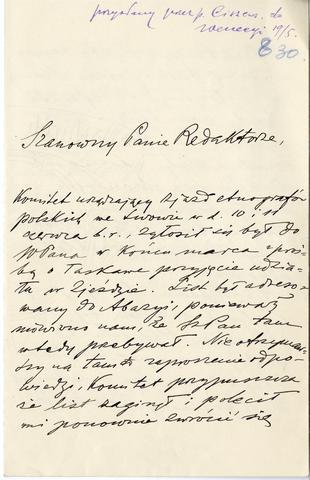 przysłany przez p. do
Wenecyi 19/5.
830.
Szanowny Panie Redaktorze,
Komitet urządzający zjazd etnografów
polskich we Lwowie w d. 10 i 11
czerwca b. r., zgłosił się był do
WPana w końcu marca z proś-
bą o łaskawe przyjęcie udzia-
łu w Zjeździe. List był adreso-
wany do Abazyi, ponieważ
mówiono nam, że SzPan tam
wtedy przebywał. Nie otrzymaw-
szy na tamto zaproszenie odpo-
wiedzi, Komitet przypuszcza
że list zaginął i polecił
mi ponownie zwrócić się